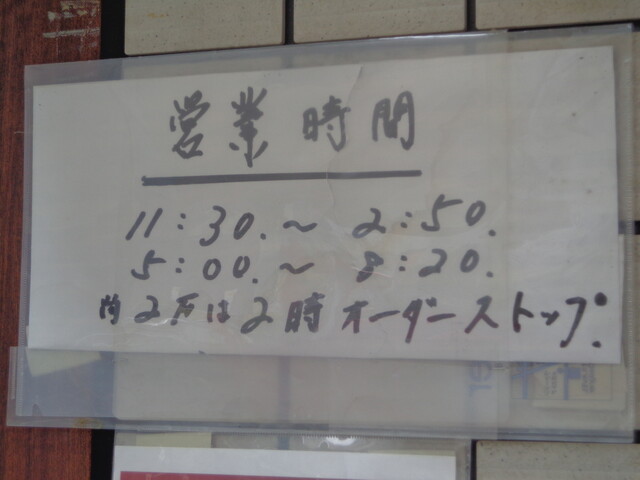 営業時間
11:30.～2:50.
5:00.～8:20.
尚2は2時オーダーストップ.